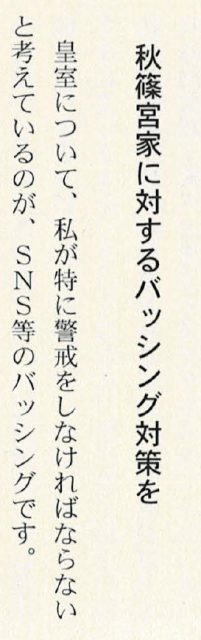 秋篠宮家に対するバッシング対策を
皇室について、私が特に警戒をしなければならない
と考えているのが、SNS等のバッシングです。